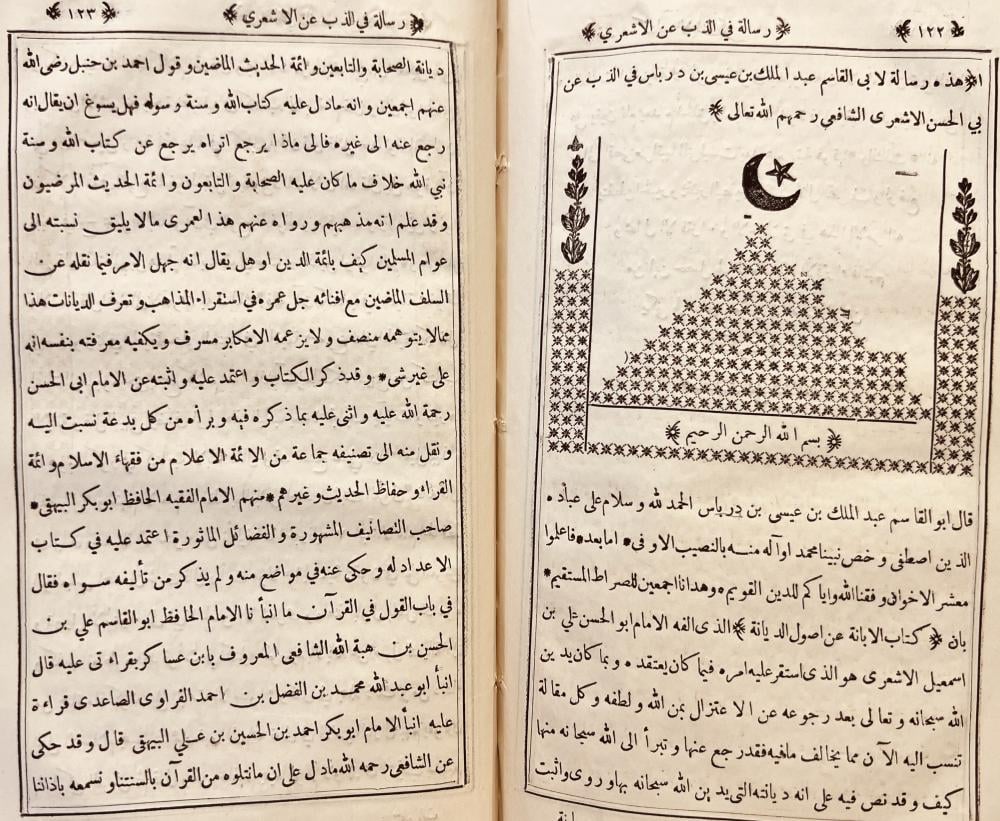 ﴿ ١٢٢ ﴾ ﴿ رسالة في الذب عن الاشعري ﴾
﴿ هذه رسالة لابى القاسم عبد الملك بن عيسى بن درباس في الذب عن
ابي الحسن الاشعرى الشافعي رحمهم الله تعالى ﴾
﴿ بسم الله الرحمن الرحيم ﴾
قال ابو القاسم عبد الملك بن عيسى بن درباس الحمد لله وسلام على عباده
الذين اصطفى وخص نبينا محمدا وآله منه بالنصيب الاوفى * اما بعد * فاعلموا
معشر الاخوان وفقنا الله واياكم للدين القويم وهدانا اجمعين للصراط المستقيم *
بان ﴿ كتاب الابانة عن اصول الديانة ﴾ الذى الفه الامام ابو الحسن علي بن
اسمعيل الاشعرى هو الذى استقر عليه امره فيما كان يعتقده وبما كان يدين
الله سبحانه وتعالى بعد رجوعه عن الاعتزال بمن الله ولطفه وكل مقالة
تنسب اليه الآن مما يخالف مافيه فقد رجع عنها وتبرأ الى الله سبحانه منها
كيف وقد نص فيه على انه ديانته التى يدين الله سبحانه بها وروى واثبت
﴿ رسالة في الذب عن الاشعري ﴾ ﴿ ١٢٣ ﴾
ديانة الصحابة والتابعين وائمة الحديث الماضين وقول احمد بن حنبل رضى الله
عنهم اجمعين وانه مادل عليه كتاب الله وسنة رسوله فهل يسوغ ان يقال انه
رجع عنه الى غيره فالى ماذا يرجع اتراه يرجع عن كتاب الله وسنة
نبي الله خلاف ما كان عليه الصحابة والتابعون وائمة الحديث المرضيون
وقد علم انه مذهبهم ورواه عنهم هذا لعمرى مالا يليق نسبته الى
عوام المسلمين كيف بائمة الدين او هل يقال انه جهل الامر فيما نقله عن
السلف الماضين مع افنائه جل عمره في استقراء المذاهب وتعرف الديانات هذا
ممالا يتوهمه منصف ولا يزعمه الا مكابر مسرف ويكفيه معرفته بنفسه انه
على غير شى * وقد ذكر الكتاب واعتمد عليه واثبته عن الامام ابى الحسن
رحمة الله عليه واثنى عليه بما ذكره فيه وبرأه من كل بدعة نسبت اليه
ونقل منه الى تصنيفه جماعة من الائمة الاعلام من فقهاء الاسلام وائمة
القراء وحفاظ الحديث وغيرهم * منهم الامام الفقيه الحافظ ابوبكر البيهقى *
صاحب التصانيف المشهورة والفضائل الماثورة اعتمد عليه في كتاب
الاعتقاد له وحكى عنه في مواضع منه ولم يذكر من تأليفه سواه فقال
في باب القول في القرآن ما انبأنا الامام الحافظ ابو القاسم علي بن
الحسن بن هبة الله الشافعى المعروف بابن عساكر بقراءتى عليه قال
انبأ ابو عبد الله محمد بن الفضل بن احمد الفراوى الصاعدى قراءة
عليه انبأ الامام ابوبكر احمد بن الحسين بن علي البيهقى قال وقد حكى
عن الشافعى رحمه الله مادل على ان مانتلوه من القرآن بالسنتنا ونسمعه باذاننا